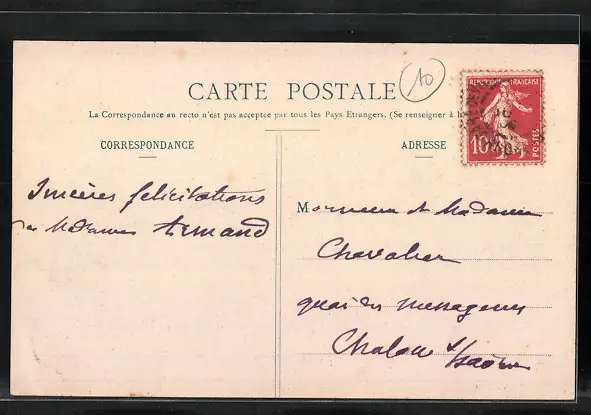 10
CARTE POSTALE
La Correspondance au recto n'est pas acceptée par tous les Pays Etrangers. (Se renseigner à la
REPUBLIQUE FRANÇAISE
10
POSTES
CORRESPONDANCE
ADRESSE
Sincères félicitations
Madame Armand
Monsieur et Madame
Chevalier
quai des Messageries
Chalon s/Saône